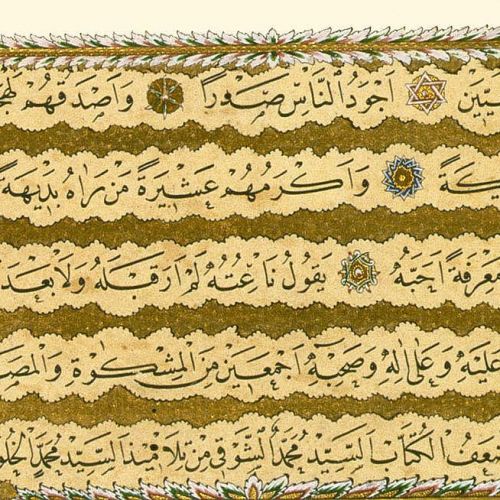 أجود الناس صدورا وأصدقهم
وأكرمهم عشيرة من راه بديهة
أحبه يقول ناعته لم أر قبله ولا بعد
عليه وعلى اله وصحبه أجمعين من المشكوة والمص
الكتاب السيد محمد الشوقي من تلاميذ السيد محمد